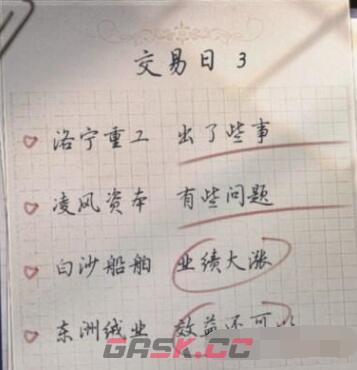 交易日 3
洛宁重工 出了些事
凌风资本 有些问题
白沙船舶 业绩大涨
东洲绒业 效益还可以
GASK.CC